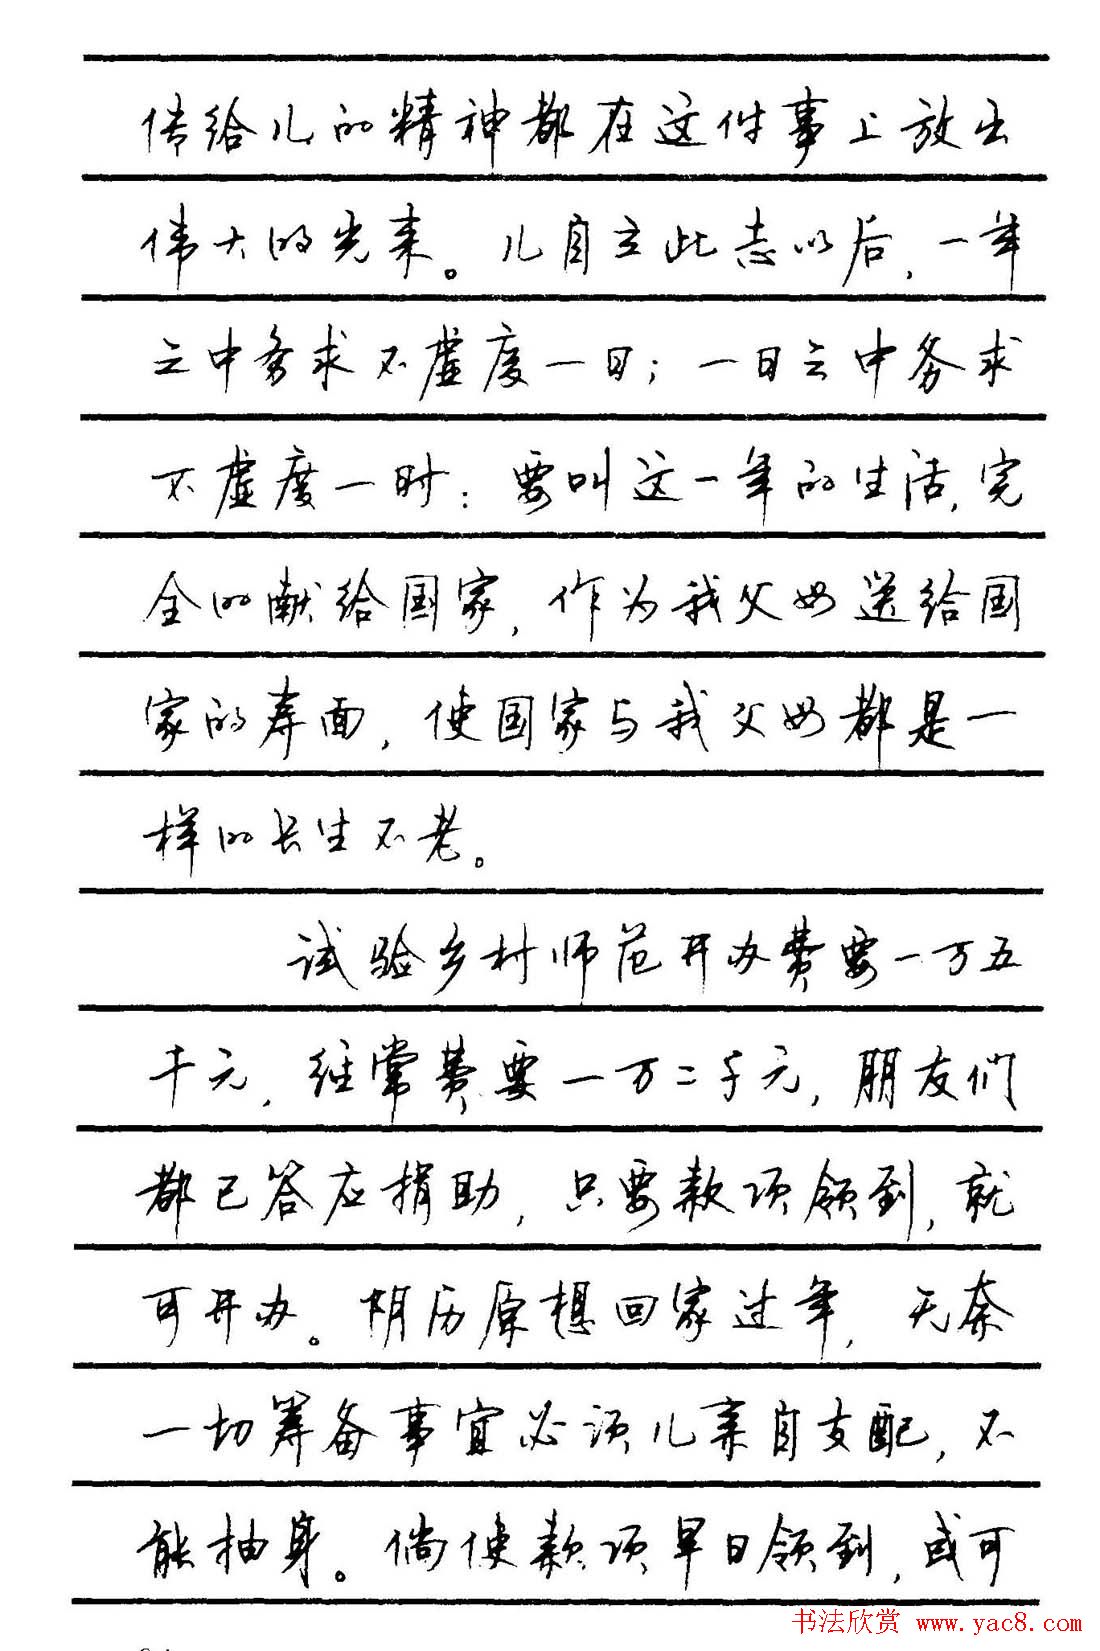 传给儿的精神都在这件事上放出
伟大的光来。儿自立此志以后，一年
之中务求不虚度一日；一日之中务求
不虚度一时：要叫这一年的生活，完
全的献给国家，作为我父母送给国
家的寿面，使国家与我父母都是一
样的长生不老。
试验乡村师范开办费要一万五
千元，经常费要一万二千元，朋友们
都已答应捐助，只要款项领到，就
可开办。阴历原想回家过年，无奈
一切筹备事宜必须儿亲自支配，不
能抽身。倘使款项早日领到，或可
书法欣赏 www.yac8.com